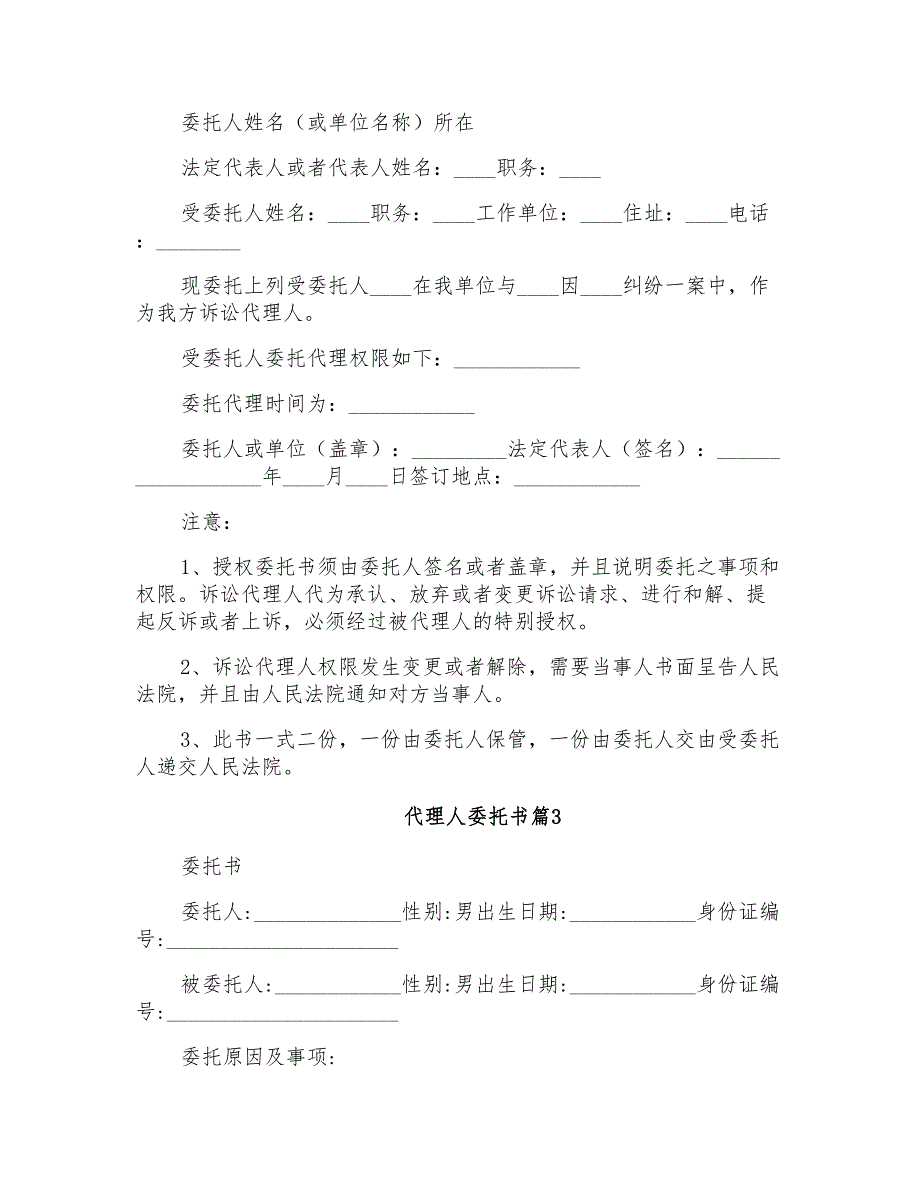 委托人姓名（或单位名称）所在
法定代表人或者代表人姓名：____职务：____
受委托人姓名：____职务：____工作单位：____住址：____电话
：________
现委托上列受委托人____在我单位与____因____纠纷一案中，作
为我方诉讼代理人。
受委托人委托代理权限如下：____________
委托代理时间为：____________
委托人或单位（盖章）：_________法定代表人（签名）：______
____________年____月____日签订地点：____________
注意：
1、授权委托书须由委托人签名或者盖章，并且说明委托之事项和
权限。诉讼代理人代为承认、放弃或者变更诉讼请求、进行和解、提
起反诉或者上诉，必须经过被代理人的特别授权。
2、诉讼代理人权限发生变更或者解除，需要当事人书面呈告人民
法院，并且由人民法院通知对方当事人。
3、此书一式二份，一份由委托人保管，一份由委托人交由受委托
人递交人民法院。
代理人委托书篇3
委托书
委托人:______________性别:男出生日期:____________身份证编
号:______________________
被委托人:____________性别:男出生日期:____________身份证编
号:______________________
委托原因及事项: